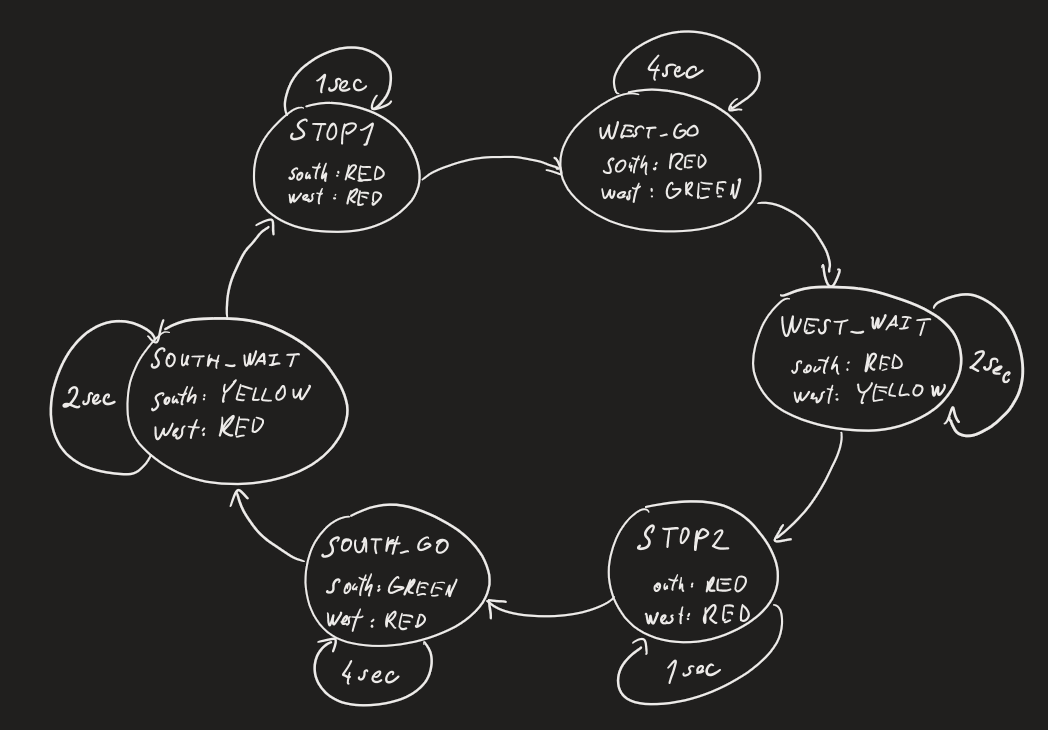 1sec
STOP1
south: RED
west: RED
4sec
WEST_GO
south: RED
west: GREEN
WEST_WAIT
south: RED
west: YELLOW
2sec
STOP2
outh: RED
west: RED
1sec
SOUTH_GO
south: GREEN
west: RED
4sec
SOUTH_WAIT
south: YELLOW
west: RED
2sec